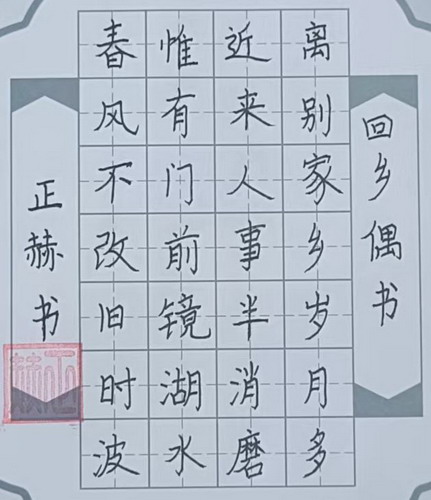 回乡偶书
离别家乡岁月多
近来人事半消磨
惟有门前镜湖水
春风不改旧时波
正赫书